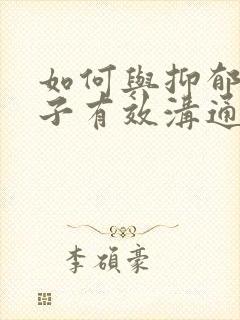 如何與抑郁
子有效溝通
李碩豪